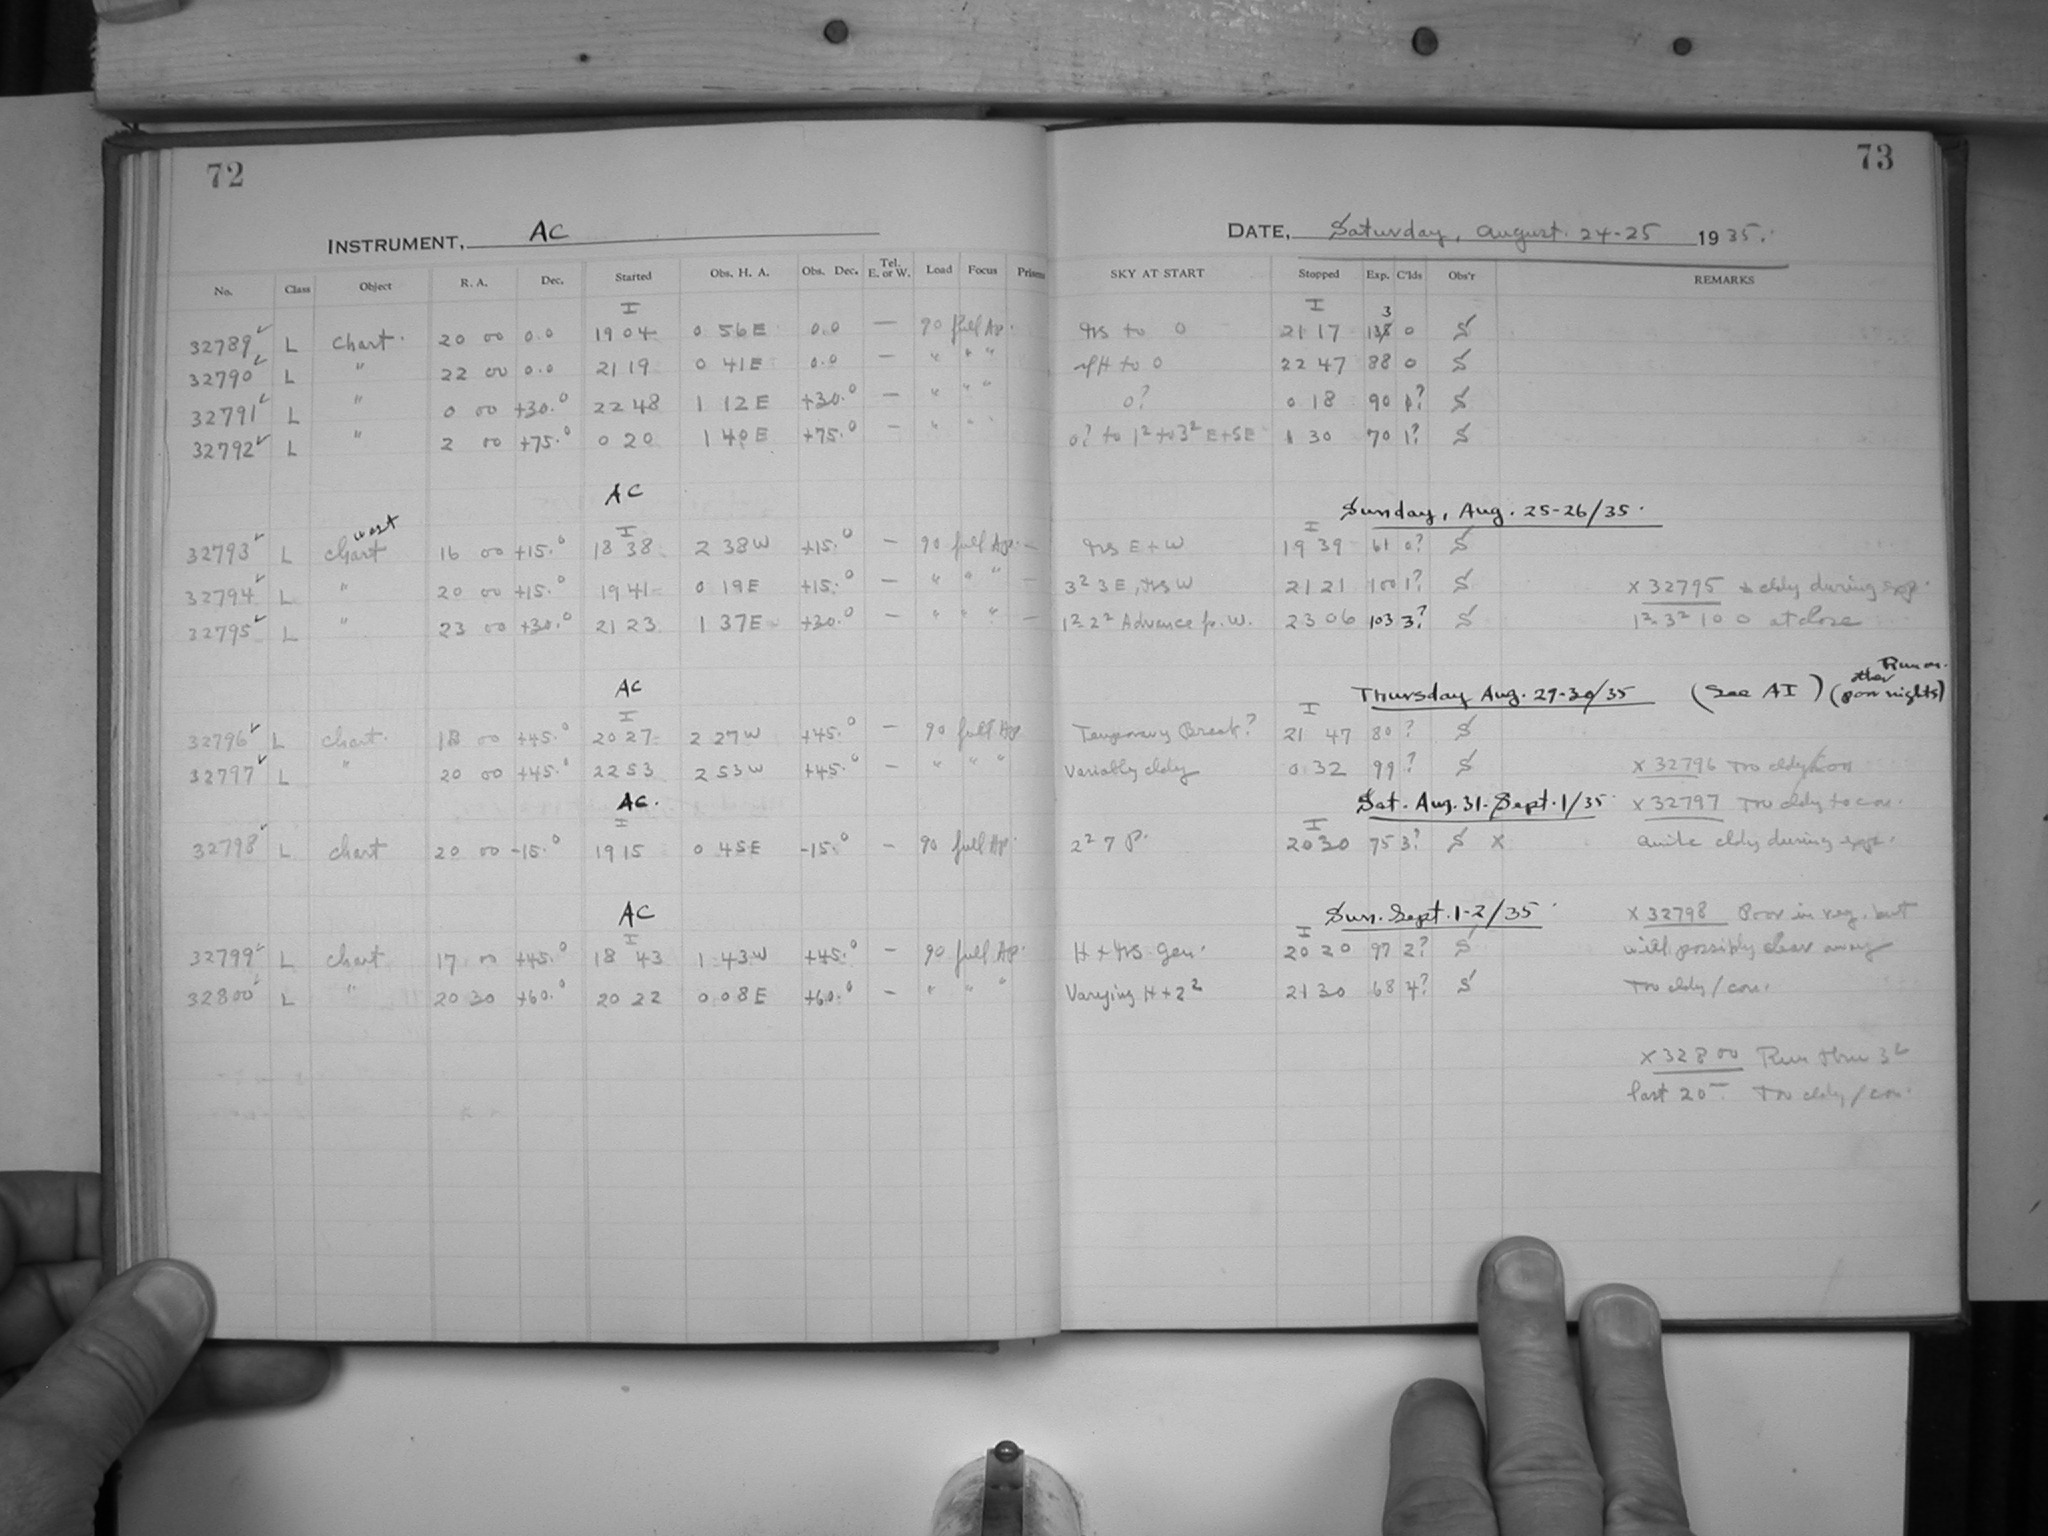 72
73
INSTRUMENT, AC
DATE, Saturday, August. 24-25 1935.
No. Class Object R. A. Dec. Started Obs. H. A. Obs. Dec. Tel. E. or W. Load Focus Prisms SKY AT START Stopped Exp. C'lds Obs'r REMARKS
I I
32789 L Chart. 20 00 0.0 19 04 0 56E 0.0 — 90 full Ap. to 0 21 17 133 0 S
32790 L " 22 00 0.0 21 19 0 41E 0.0 — " " " to 0 22 47 88 0 S
32791 L " 0 00 +30.0 22 48 1 12E +30.0 — " " " 0? 0 18 90 1? S
32792 L " 2 00 +75.0 0 20 1 40E +75.0 — " " " 0? to 1² to 3² E+SE 1 30 70 1? S
AC Sunday, Aug. 25-26/35.
I I
32793 L chart 16 00 +15.0 18 38 2 38W +15.0 — 90 full Ap. — E+W 19 39 61 0? S
32794 L " 20 00 +15.0 19 41 0 19E +15.0 — " " " — 3² 3E, W 21 21 100 1? S x 32795 cldy during exp.
32795 L " 23 00 +30.0 21 23 1 37E +30.0 — " " " — 1² 2² Advance fr. W. 23 06 103 3? S 1² 3² 10 0 at close
AC Thursday Aug. 29-30/35 (See AI) (Run on other poor nights)
I I
32796 L chart. 18 00 +45.0 20 27 2 27W +45.0 — 90 full Ap Temporary Break? 21 47 80 ? S
32797 L " 20 00 +45.0 22 53 2 53W +45.0 — " " " Variably cldy 0 32 99 ? S x 32796 Too cldy/con
AC. Sat. Aug. 31-Sept. 1/35 x 32797 Too cldy to con.
I I
32798 L chart 20 00 -15.0 19 15 0 45E -15.0 — 90 full Ap. 2² 7 P. 20 30 75 3? S x Quite cldy during exp.
AC Sun. Sept. 1-2/35 x 32798 Poor in reg. but
I I
32799 L chart 17 00 +45.0 18 43 1 43W +45.0 — 90 full Ap. H + Gen. 20 20 97 2? S will possibly clear away
32800 L " 20 30 +60.0 20 22 0 08E +60.0 — " " " Varying H+2² 21 30 68 4? S Too cldy/con.
x 32800 Run thru 3²
last 20ᵐ. Too cldy/con.